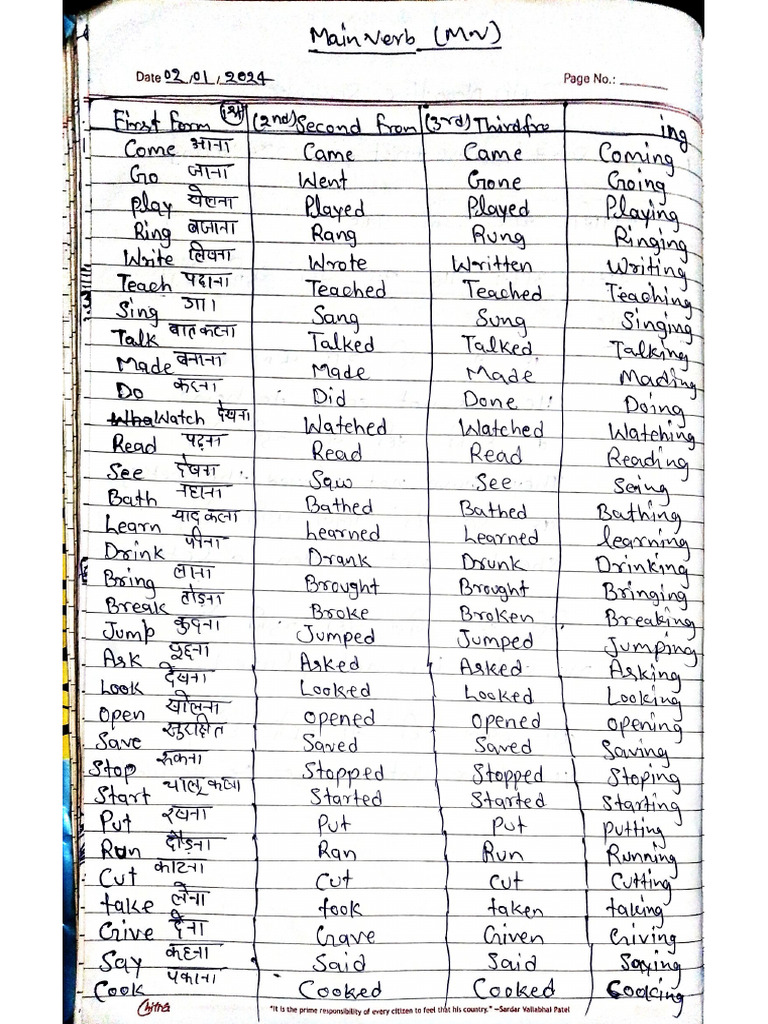 Main verb (M.V)
Date 02,01,2024 Page No.:
First Form (1st) (2nd) Second from (3rd) Third fro ing
Come आना Came Came Coming
Go जाना Went Gone Going
Play खेलना Played Played Playing
Ring बजाना Rang Rung Ringing
Write लिखना Wrote Written Writing
Teach पढाना Teached Teached Teaching
Sing गा। Sang Sung Singing
Talk बात करना Talked Talked Talking
Made बनाना Made Made Mading
Do करना Did Done Doing
Watch देखना Watched Watched Watching
Read पढ़ना Read Read Reading
See देखना Saw See Seing
Bath नहाना Bathed Bathed Bathing
Learn याद करना Learned Learned learning
Drink पीना Drank Drunk Drinking
Bring लाना Brought Brought Bringing
Break तोड़ना Broke Broken Breaking
Jump कुदना Jumped Jumped Jumping
Ask पुछना Asked Asked Asking
Look देखना Looked Looked Looking
Open खोलना opened opened opening
Save सुरक्षित Saved Saved Saving
Stop रुकना Stopped Stopped Stoping
Start चालू करना Started Started Starting
Put रखना Put Put putting
Run दौड़ना Ran Run Running
Cut काटना Cut Cut Cutting
take लेना took taken taking
Give देना Gave Given Giving
Say कहना Said Said Saying
Cook पकाना Cooked Cooked Cooking
Chitra "It is the prime responsibility of every citizen to feel that his country." –Sardar Vallabhai Patel